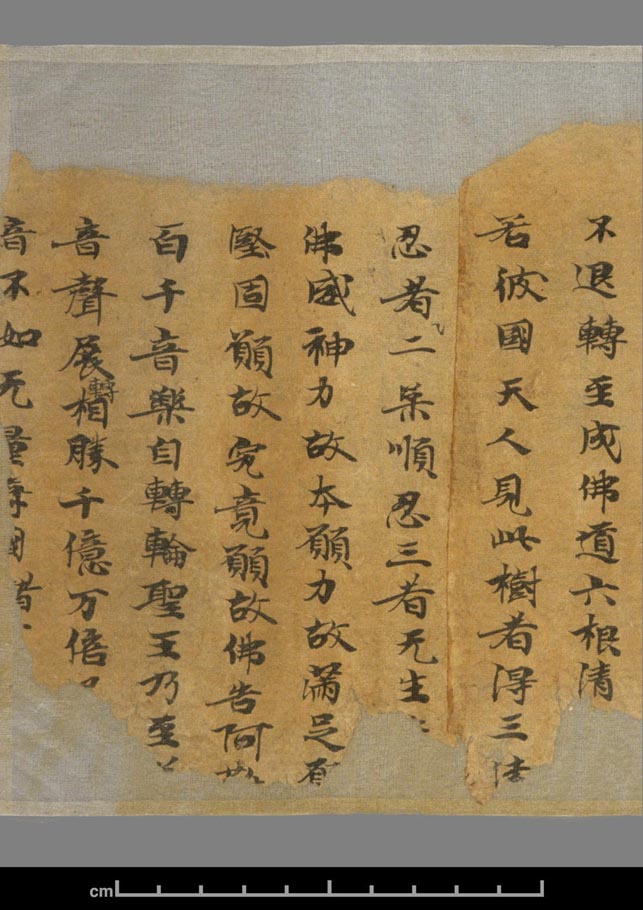 不退轉至成佛道六根清
若彼國天人見此樹者得三法
忍者二柔順忍三者无生
佛威神力故本願力故滿足願
堅固願故究竟願故佛告阿
百千音樂自轉輪聖王乃至
音聲展轉相勝千億万倍
音不如无量壽國
cm